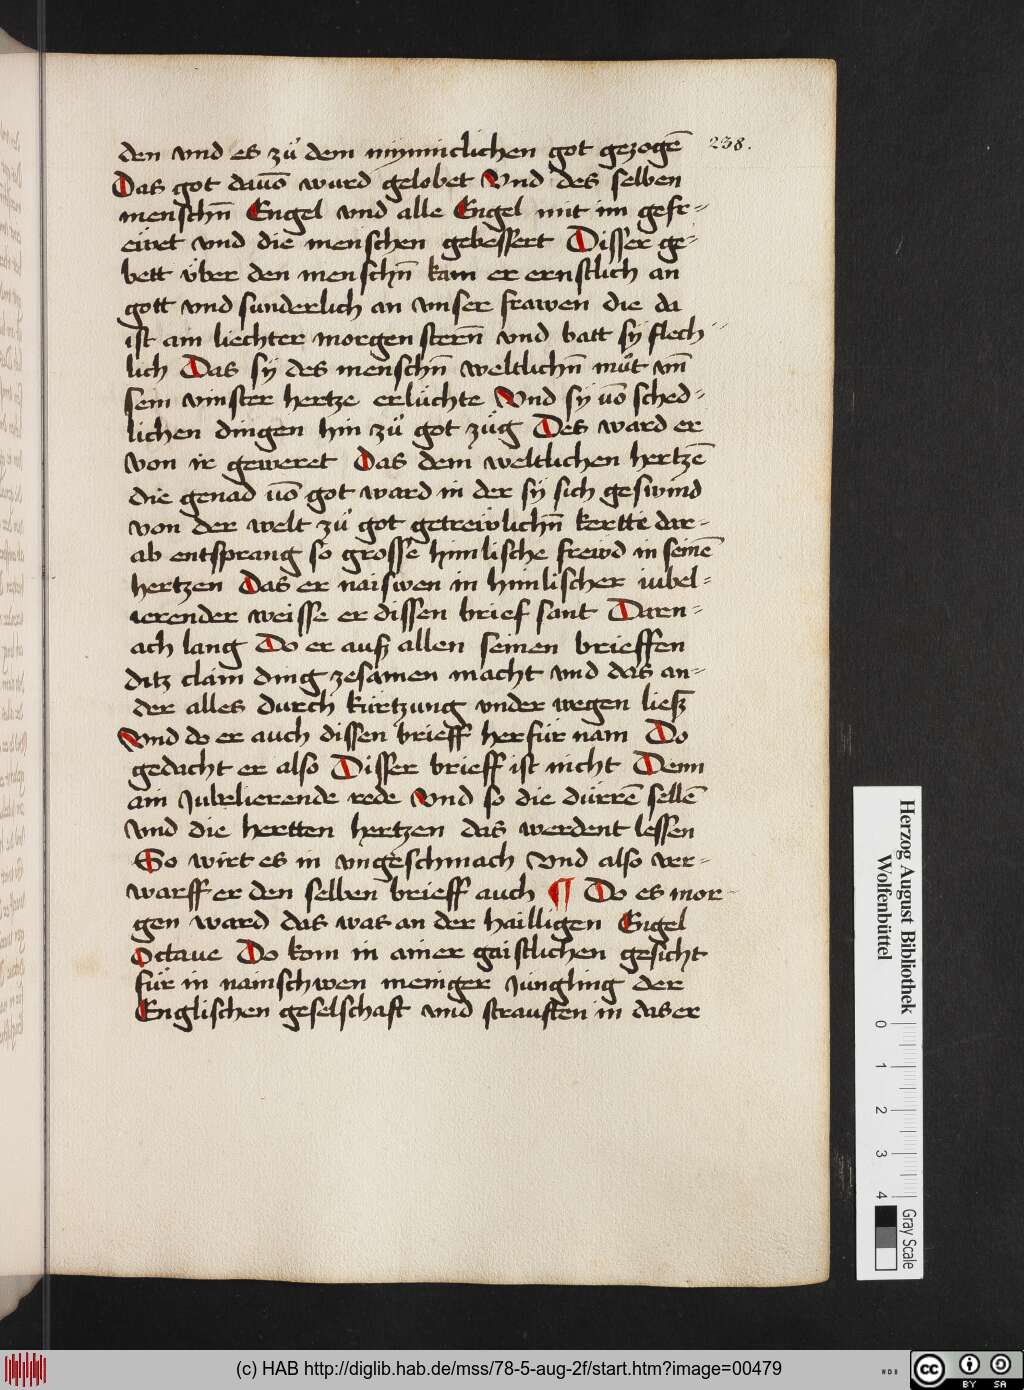 den vnd es zů dem mynniclichen got gezogē 238.
Das got dauō wurd gelobet Vnd des selben
menschn̄ Engel vnd alle Engel mit im gefr=
eẅet vnd die menschen gebessert Disser ge=
bett v̈ber den menschn̄ kam er ernstlich an
gott vnd sunderlich an vnser frawen die da
ist ain liechter morgen stern̄ vnd batt sÿ flech
lich Das sÿ des menschn̄ weltlichn̄ můt vn̄
sein vinster hertze erlüchte Vnd sÿ vō sched=
lichen dingen hin zů got züg Des ward er
von ir geweret Das dem weltlichen hertzē
die genad vō got ward in der sÿ sich geswind
von der welt zů got getreẅlichn̄ kertte dar=
ab entsprang so grosse himlische freẅd in seinē
hertzen Das er naiswen in himlischer iubel=
ierender weisse er dissen brief sant Darn=
ach lang Do er ausz allen seinen brieffen
ditz clain ding zesamen macht vnd das an=
der alles durch kürtzung vnder wegen liesz
Vnd do er auch dissen brieff herfür nam Do
gedacht er also Disser brieff ist nicht Denn
ain Jubelierende rede Vnd so die dürrē sellē
vnd die hertten hertzen das werdent lessen
So wirt es in vngeschmach Vnd also ver=
warff er den selben brieff auch ¶ Do es mor=
gen ward das was an der hailligen Engel
Octaue Do kom in ainer gaistlichen gesicht
für in nainschwen meniger Jüngling der
Englischen geselschaft vnd strauften in das er
Herzog August Bibliothek
Wolfenbüttel
0 1 2 3 4
Gray Scale
(c) HAB http://diglib.hab.de/mss/78-5-aug-2f/start.htm?image=00479
cc BY SA